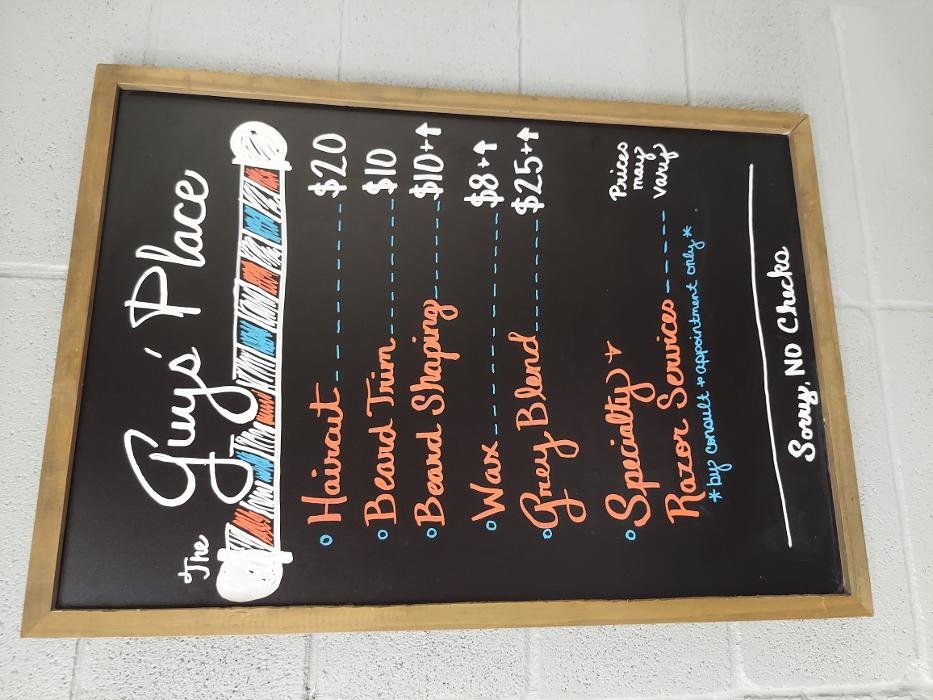 The Guys' Place
Haircut $20
Beard Trim $10
Beard Shaping $10+↑
Wax $8+↑
Grey Blend $25+↑
Specialty +
Razor Services Prices may vary
*by consult + appointment only*
Sorry, NO Checks